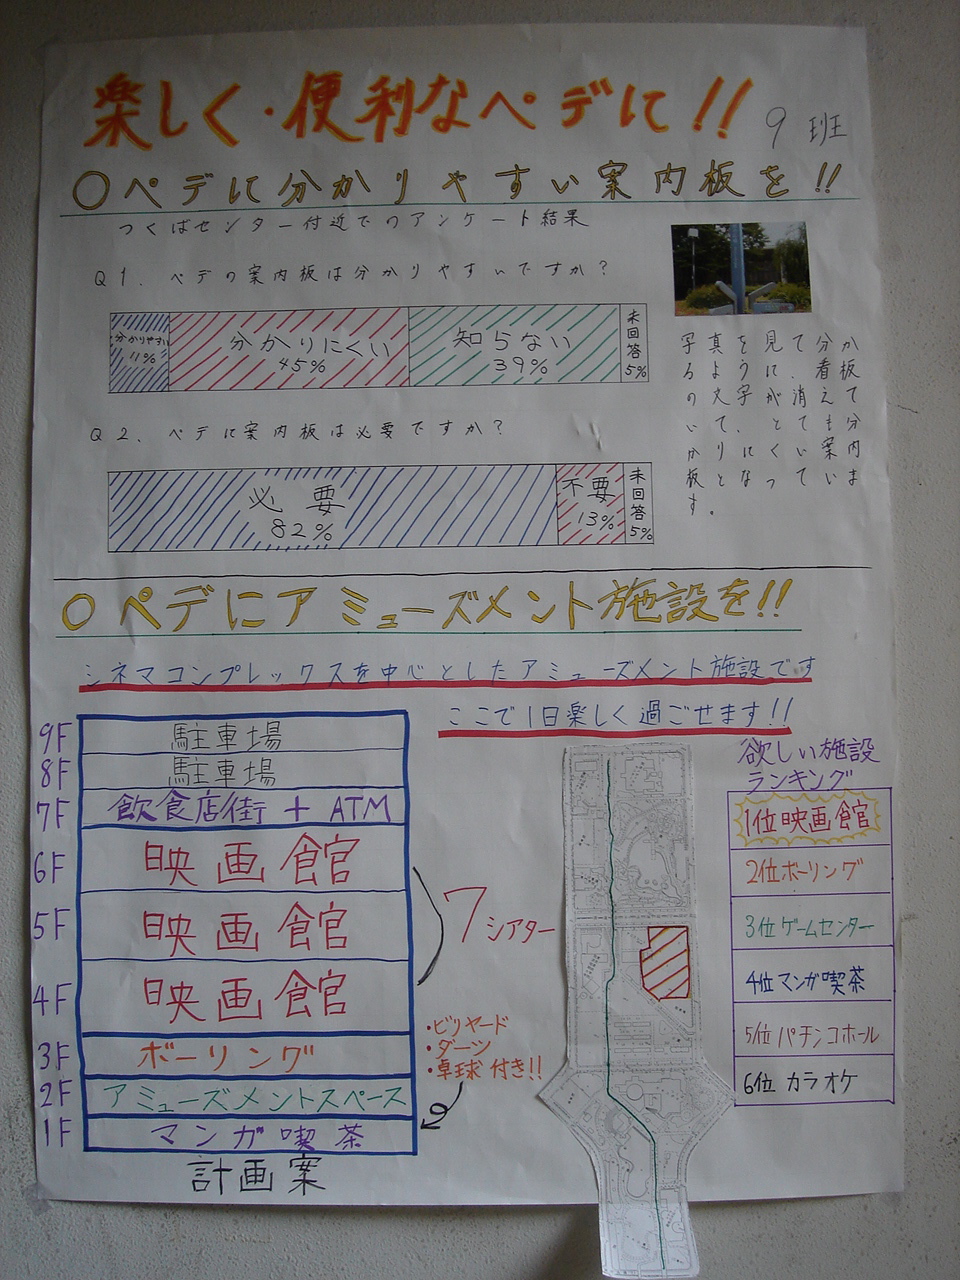 楽しく・便利なペデに!!
9 班
○ペデに分かりやすい案内板を!!
つくばセンター付近でのアンケート結果
Q1. ペデの案内板は分かりやすいですか?
分かりやすい
11%
分かりにくい
45%
知らない
39%
未回答
5%
写真を見て分か
るように、看板
の文字が消えて
いて、とても分
かりにくい案内
板となっていま
す。
Q2. ペデに案内板は必要ですか?
必要
82%
不要
13%
未回答
5%
○ペデにアミューズメント施設を!!
シネマコンプレックスを中心としたアミューズメント施設です
ここで1日楽しく過ごせます!!
9F 駐車場
8F 駐車場
7F 飲食店街 + ATM
6F 映画館
5F 映画館
4F 映画館
3F ボーリング
2F アミューズメントスペース
1F マンガ喫茶
計画案
7シアター
・ビリヤード
・ダーツ
・卓球 付き!!
欲しい施設
ランキング
1位映画館
2位ボーリング
3位ゲームセンター
4位マンガ喫茶
5位パチンコホール
6位 カラオケ